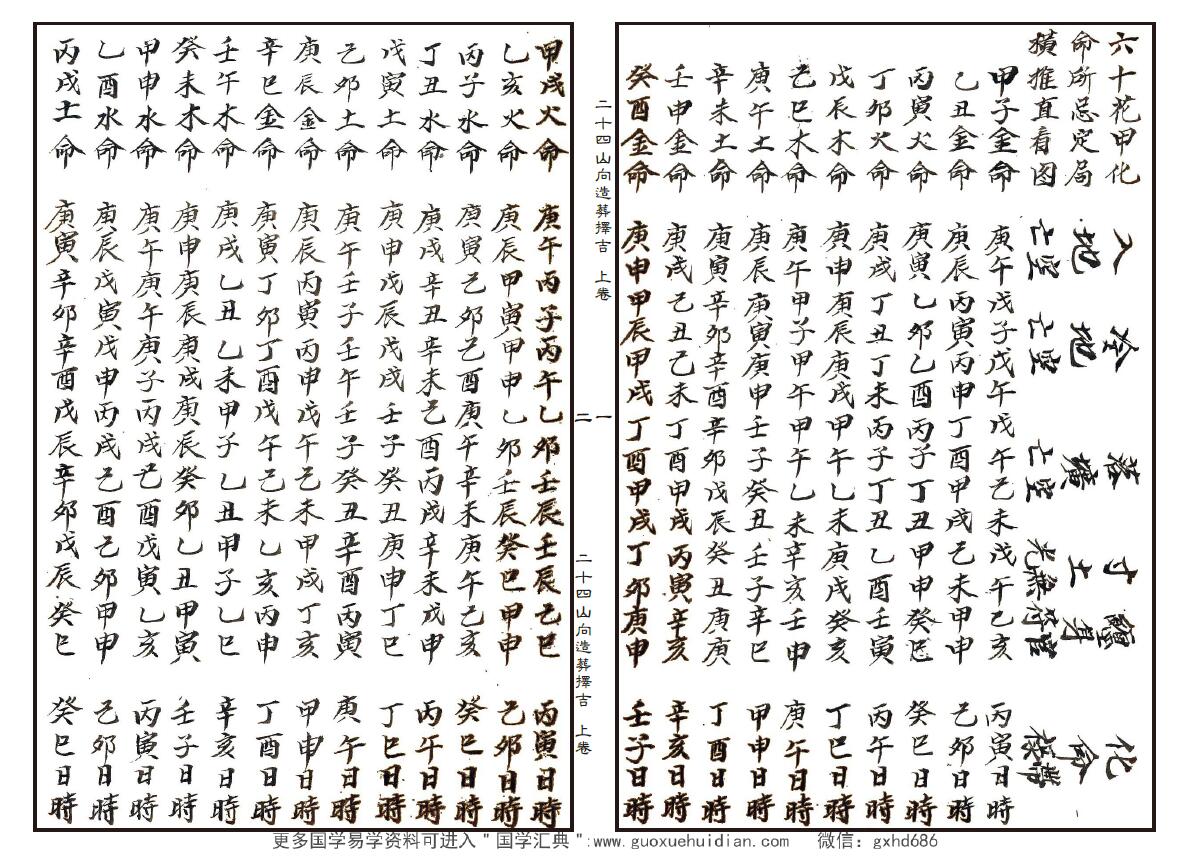 六十花甲化
命所忌定局
横推直看图
入 地 亡空
地 亡空
亡空
土
化命
甲子金命 庚午戊子戊午戊午己未戊午乙亥 丙寅日時
乙丑金命 庚辰丙寅丙申丁酉甲戌乙未甲申 乙卯日時
丙寅火命 庚寅乙卯乙酉丙子丁丑甲申癸巳 癸巳日時
丁卯火命 庚戌丁丑丁未丙子丁丑乙酉壬寅 丙午日時
戊辰木命 庚申庚辰庚戌甲午乙未庚戌癸亥 丁巳日時
己巳木命 庚午甲子甲午甲午乙未辛亥壬申 庚午日時
庚午土命 庚辰庚寅庚申壬子癸丑壬子辛巳 甲申日時
辛未土命 庚寅辛卯辛酉辛卯戊辰癸丑庚庚 丁酉日時
壬申金命 庚戌己丑己未丁酉甲戌丙寅辛亥 辛亥日時
癸酉金命 庚申甲辰甲戌丁酉甲戌丁卯庚申 壬子日時
二十四山向造葬擇吉 上卷
一
二
二十四山向造葬擇吉 上卷
甲戌火命 庚午丙子丙午乙卯壬辰壬辰己巳 丙寅日時
乙亥火命 庚辰甲寅甲申乙卯壬辰癸巳甲申 乙卯日時
丙子水命 庚寅己卯己酉庚午辛未庚午乙亥 癸巳日時
丁丑水命 庚戌辛丑辛未己酉丙戌辛未戊申 丙午日時
戊寅土命 庚申戊辰戊戌壬子癸丑庚申丁巳 丁巳日時
己卯土命 庚午壬子壬午壬子癸丑辛酉丙寅 庚午日時
庚辰金命 庚辰丙寅丙申戊午己未甲戌丁亥 甲申日時
辛巳金命 庚寅丁卯丁酉戊午己未乙亥丙申 丁酉日時
壬午木命 庚戌乙丑乙未甲子乙丑甲子乙巳 辛亥日時
癸未木命 庚申庚辰庚戌庚辰癸卯乙丑甲寅 壬子日時
甲申水命 庚午庚午庚子丙戌己酉戊寅乙亥 丙寅日時
乙酉水命 庚辰戊寅戊申丙戌己酉己卯甲申 乙卯日時
丙戌土命 庚寅辛卯辛酉戊辰辛卯戊辰癸巳 癸巳日時
更多国学易学资料可进入＂国学汇典＂:www.guoxuehuidian.com 微信：gxhd686